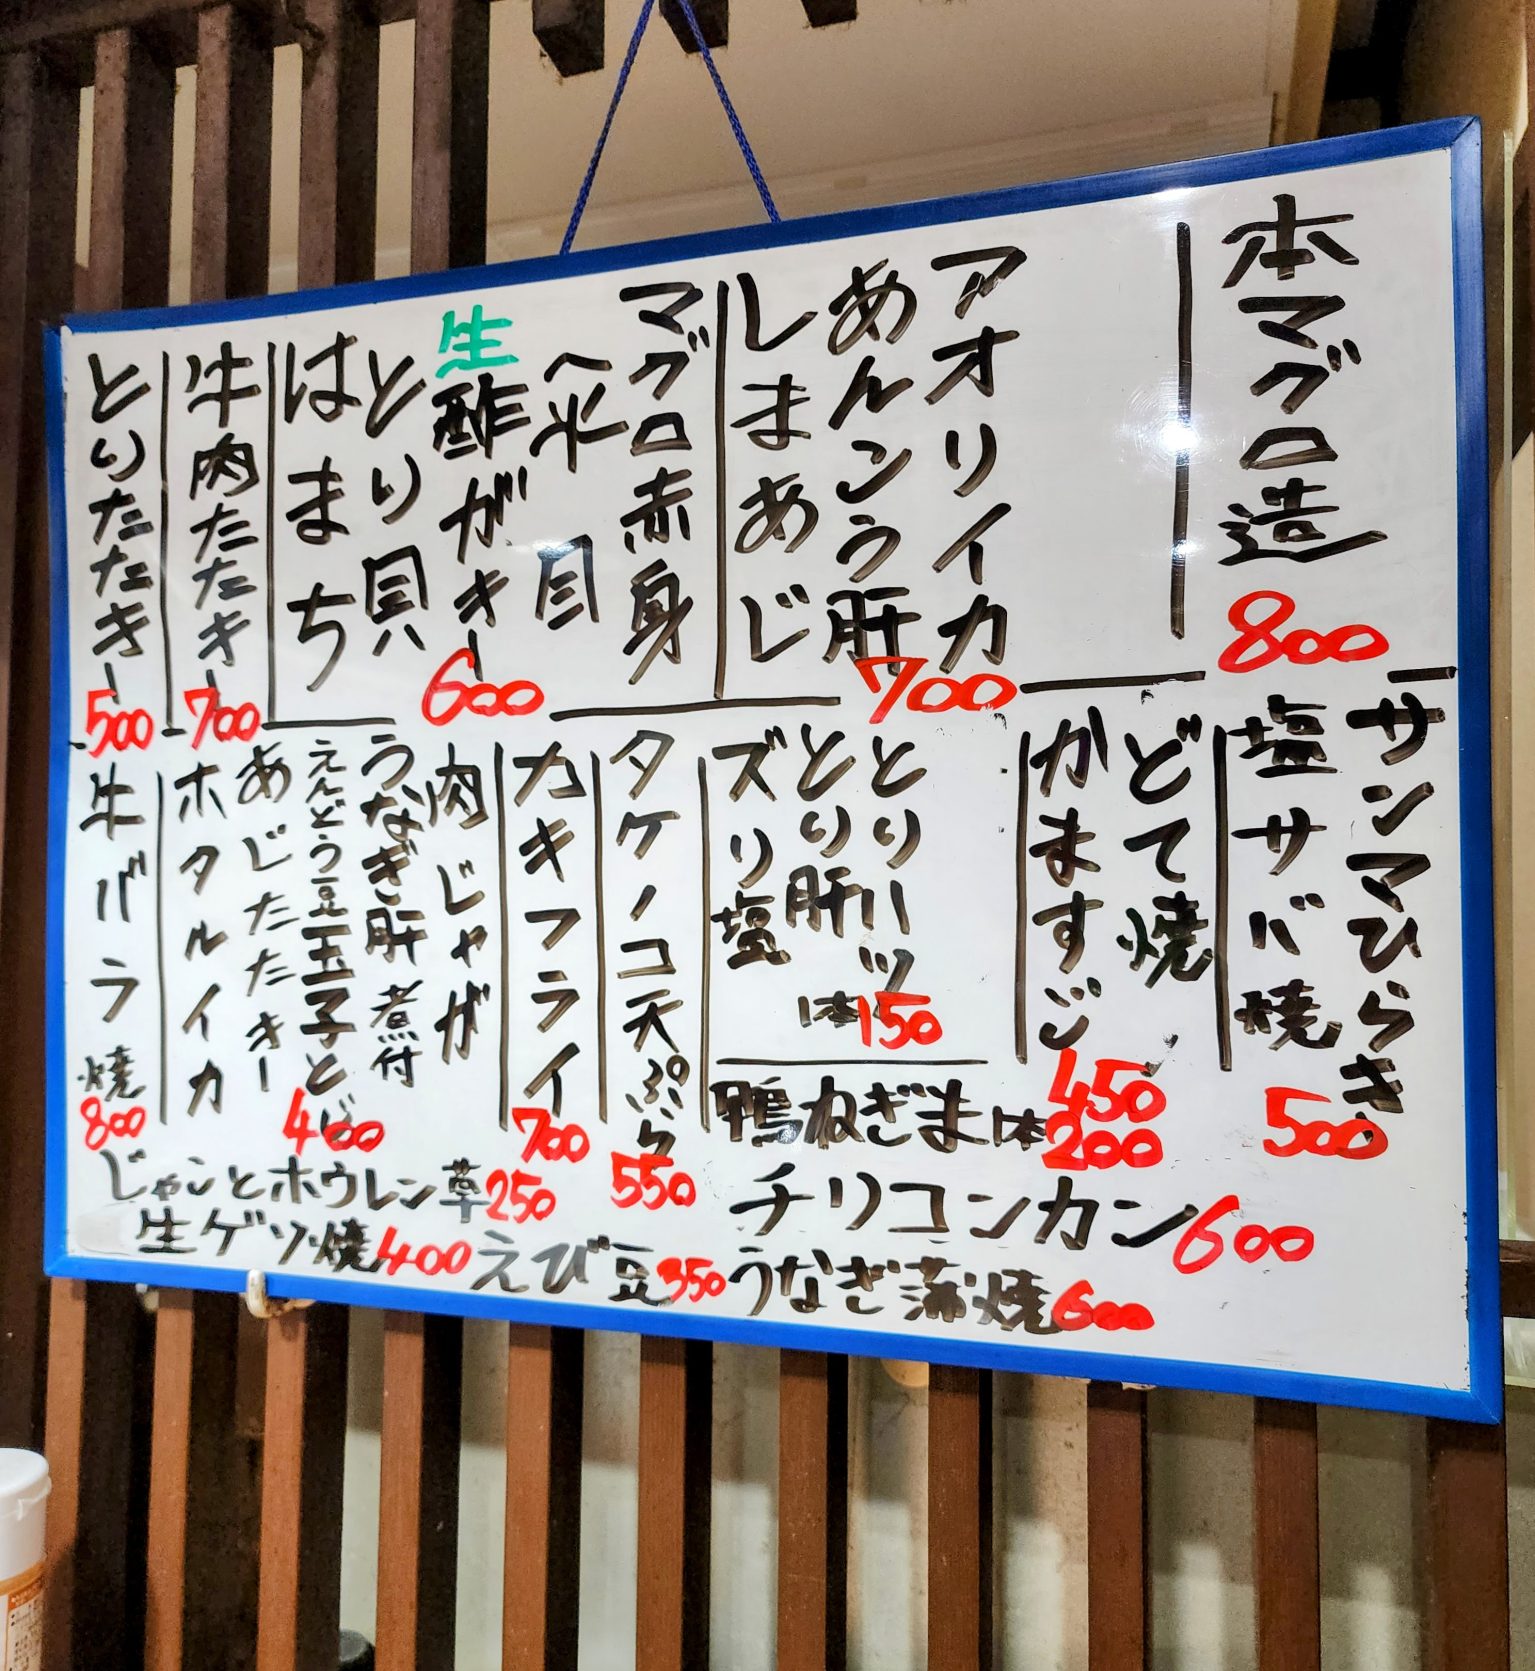 本マグロ造
800
アオリイカ
あんコウ肝
しまあじ
700
マグロ赤身
平貝
生酢がきー
とり貝
はまち
600
牛肉たたきー
700
とりたたきー
500
サンマひらき
塩サバ焼
500
どて焼
かますご
450
とりハツ
とり肝
ズリ塩
1本150
鴨ねぎま1本200
タケノコ天ぷら
550
カキフライ
700
肉じゃが
うなぎ肝煮付
えんどう豆玉子とじ
あじたたきー
ホタルイカ
400
牛バラ焼
800
じゃことホウレン草250
チリコンカン600
生ゲソ焼400
えび豆350
うなぎ蒲焼600